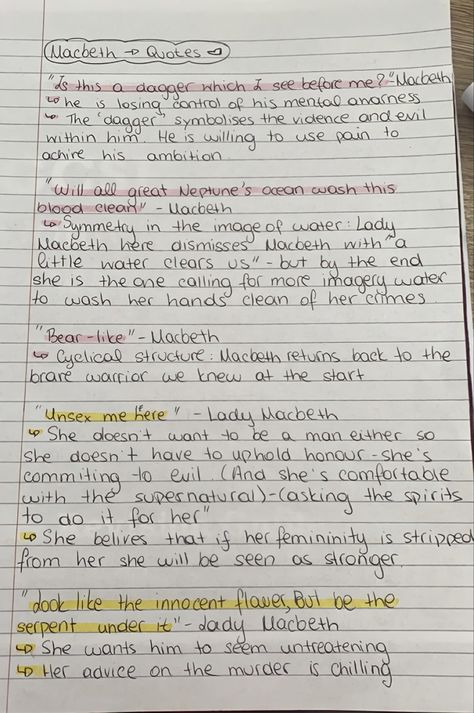 Macbeth → Quotes
"Is this a dagger which I see before me?" Macbeth
↳ he is losing control of his mental anarness
↳ The 'dagger' symbolises the vidence and evil
within him. He is willing to use pain to
achire his ambition.
"Will all great Neptune's ocean wash this
blood clean" - Macbeth
↳ Symmetry in the image of water: Lady
Macbeth here dismisses Macbeth with "a
little water clears us" - but by the end
she is the one calling for more imagery water
to wash her hands clean of her crimes.
"Bear-like" - Macbeth
↳ Cyclical structure: Macbeth returns back to the
brave warrior we knew at the start
"Unsex me here" - Lady Macbeth
↳ She doesn't want to be a man either so
she doesn't have to uphold honour - she's
commiting to evil. (And she's comfortable
with the supernatural) - (asking the spirits
to do it for her"
↳ She belives that if her femininity is stripped
from her she will be seen as stronger.
"look like the innocent flower, But be the
serpent under it" - Lady Macbeth
↳ She wants him to seem untreatening
↳ Her advice on the murder is chilling